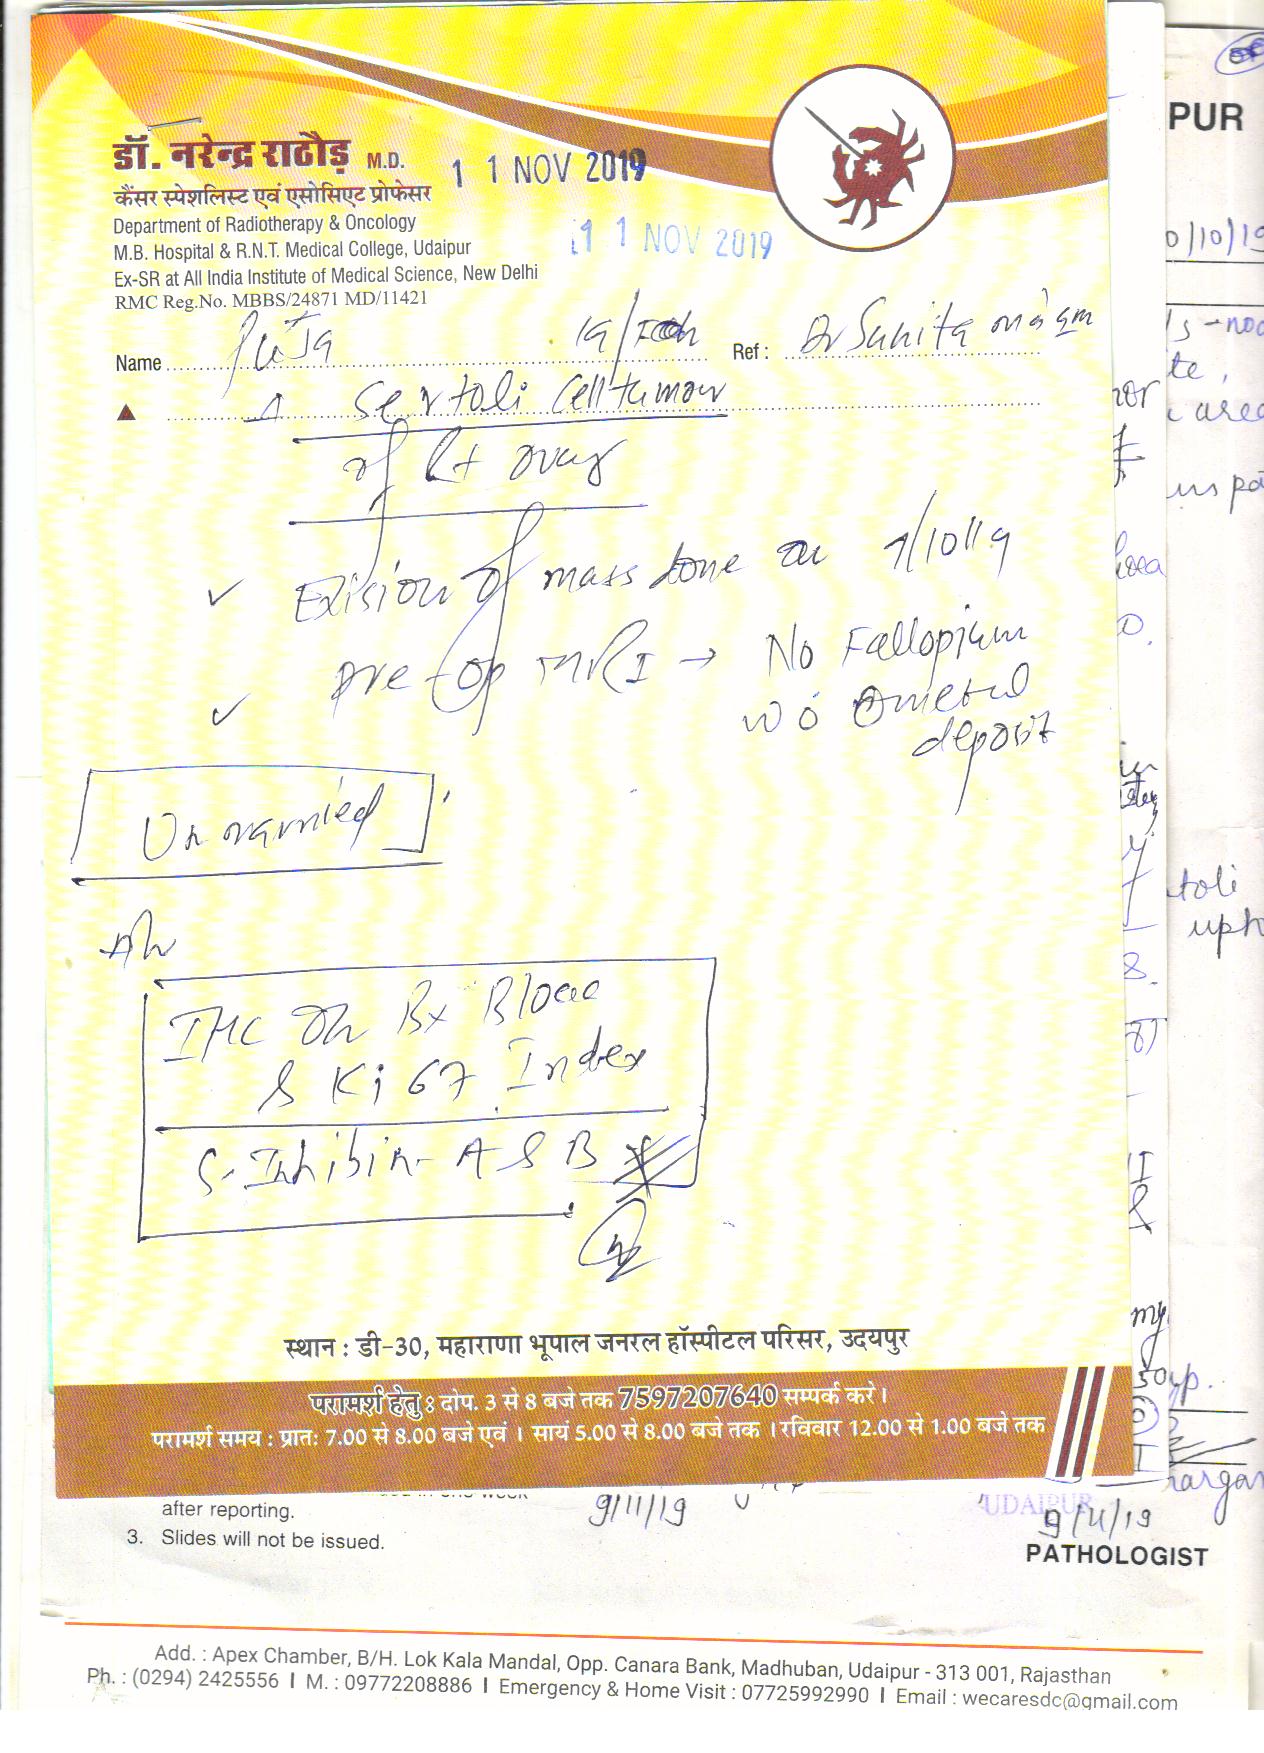 डॉ. नरेन्द्र राठौड़ M.D.
11 NOV 2019
कैंसर स्पेशलिस्ट एवं एसोसिएट प्रोफेसर
Department of Radiotherapy & Oncology
11 NOV 2019
M.B. Hospital & R.N.T. Medical College, Udaipur
Ex-SR at All India Institute of Medical Science, New Delhi
RMC Reg.No. MBBS/24871 MD/11421
Name Puja 19/ Ref : Dr Sunita ma'am
Δ Sertoli Cell tumour
of Rt ovary
✓ Exision of mass done on 7/10/19
✓ pre-op MRI → No Fallopium
deposit
Unmarried
IHC on Bx Block
& Ki 67 Index
S. Inhibin - A & B
स्थान : डी-30, महाराणा भूपाल जनरल हॉस्पीटल परिसर, उदयपुर
परामर्श हेतु : दोप. 3 से 8 बजे तक 7597207640 सम्पर्क करे ।
परामर्श समय : प्रातः 7.00 से 8.00 बजे एवं । सायं 5.00 से 8.00 बजे तक । रविवार 12.00 से 1.00 बजे तक
after reporting.
3. Slides will not be issued.
9/11/19
UDAIPUR
9/11/19
PATHOLOGIST
Add. : Apex Chamber, B/H. Lok Kala Mandal, Opp. Canara Bank, Madhuban, Udaipur - 313 001, Rajasthan
Ph. : (0294) 2425556 I M. : 09772208886 I Emergency & Home Visit : 07725992990 I Email : wecaresdc@gmail.com
PUR
0/10/19
te,
area
toli